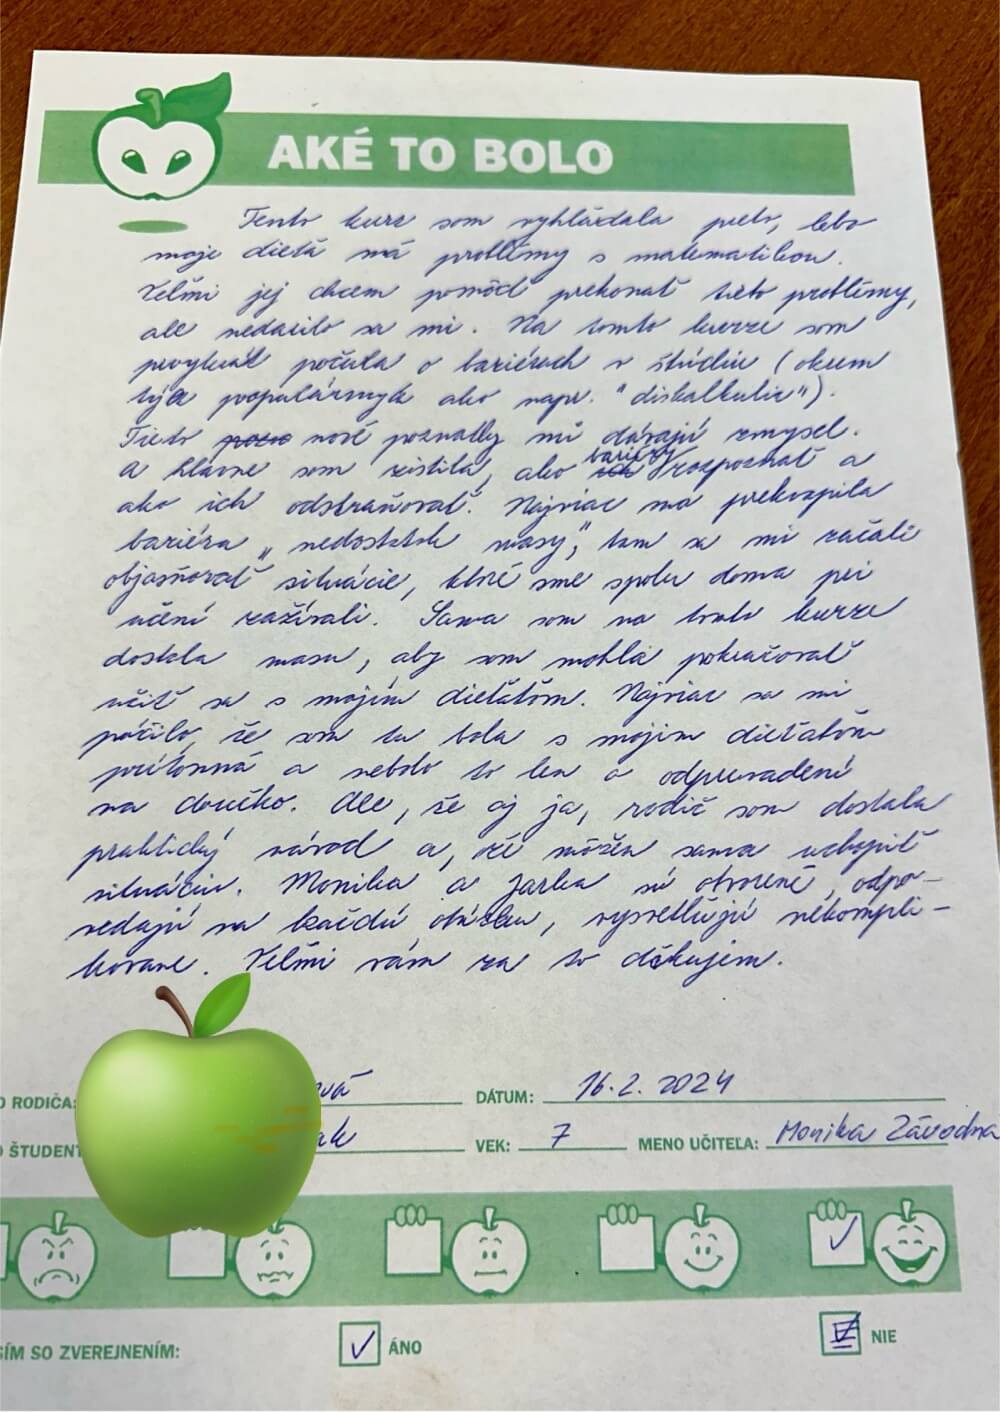 AKÉ TO BOLO
Tento kurz som vyhľadala preto, lebo
moje dieťa má problémy s matematikou.
Veľmi jej chcem pomôcť prekonať tieto problémy,
ale nedarilo sa mi. Na tomto kurze som
prvýkrát počula o bariérach v štúdiu (okrem
tých populárnych ako napr. "diskalkulia").
Tieto nové poznatky mi dávajú zmysel.
A hlavne som zistila, ako bariéry rozpoznať a
ako ich odstraňovať. Najviac ma prekvapila
bariéra "nedostatok masy", tam sa mi začali
objasňovať situácie, ktoré sme spolu doma pri
učení zažívali. Sama som na tomto kurze
dostala masu, aby som mohla pokračovať
učiť sa s mojím dieťaťom. Najviac sa mi
páčilo, že som tu bola s mojim dieťaťom
prítomná a nebolo to len o odprevadení
na doučko. Ale, že aj ja, rodič som dostala
praktický návod a, že môžem sama uchopiť
situáciu. Monika a Jarka sú otvorené, odpo-
vedajú na každú otázku, vysvetľujú nekompli-
kovane. Veľmi vám za to ďakujem.
O RODIČA: vá DÁTUM: 16.2.2024
O ŠTUDENT ak VEK: 7 MENO UČITEĽA: Monika Závodna
SÍM SO ZVEREJNENÍM: ÁNO NIE